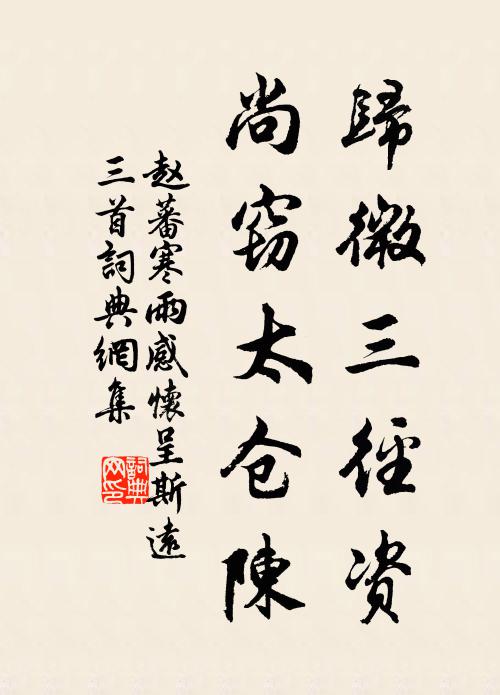 歸微三徑资
尚窃太仓陳
赵蕃寒雨感懷呈斯遠
三首詞典網集
詞典网印